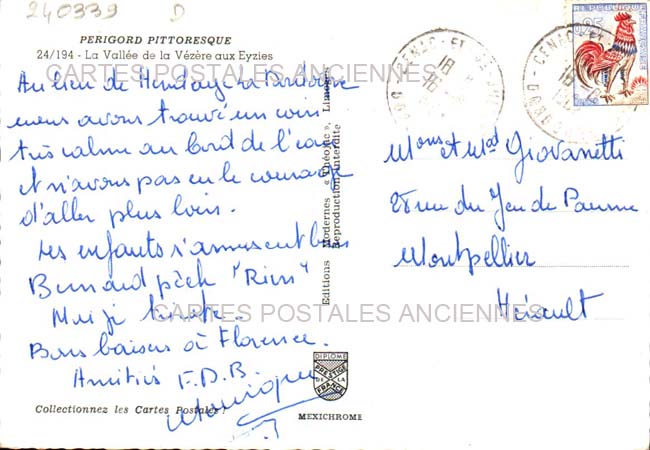 240339 D
PERIGORD PITTORESQUE
24/194 - La Vallée de la Vézère aux Eyzies
CARTES POSTALES ANCIENNES
Au lieu de Hendaye la
nous avons trouvé un coin
très calme au bord de l'eau
et n'avons pas eu le courage
d'aller plus loin.
Les enfants s'amusent bien
Bernard pêche "Rien"
CARTES POSTALES ANCIENNES
Moi je
Bons baisers à Florence.
Amitiés F.D.B.
Monique
Collectionnez les Cartes Postales !
Editions Modernes « Théojac », Limoges
Reproduction interdite
DIPLOME
PRESTIGE
DE LA
FRANCE
MEXICHROME
REPUBLIQUE
0,25
CENAC-ET-
18
DORDOGNE
Mons et Mad Giovanetti
28 rue du Jeu de Paume
Montpellier
Hérault